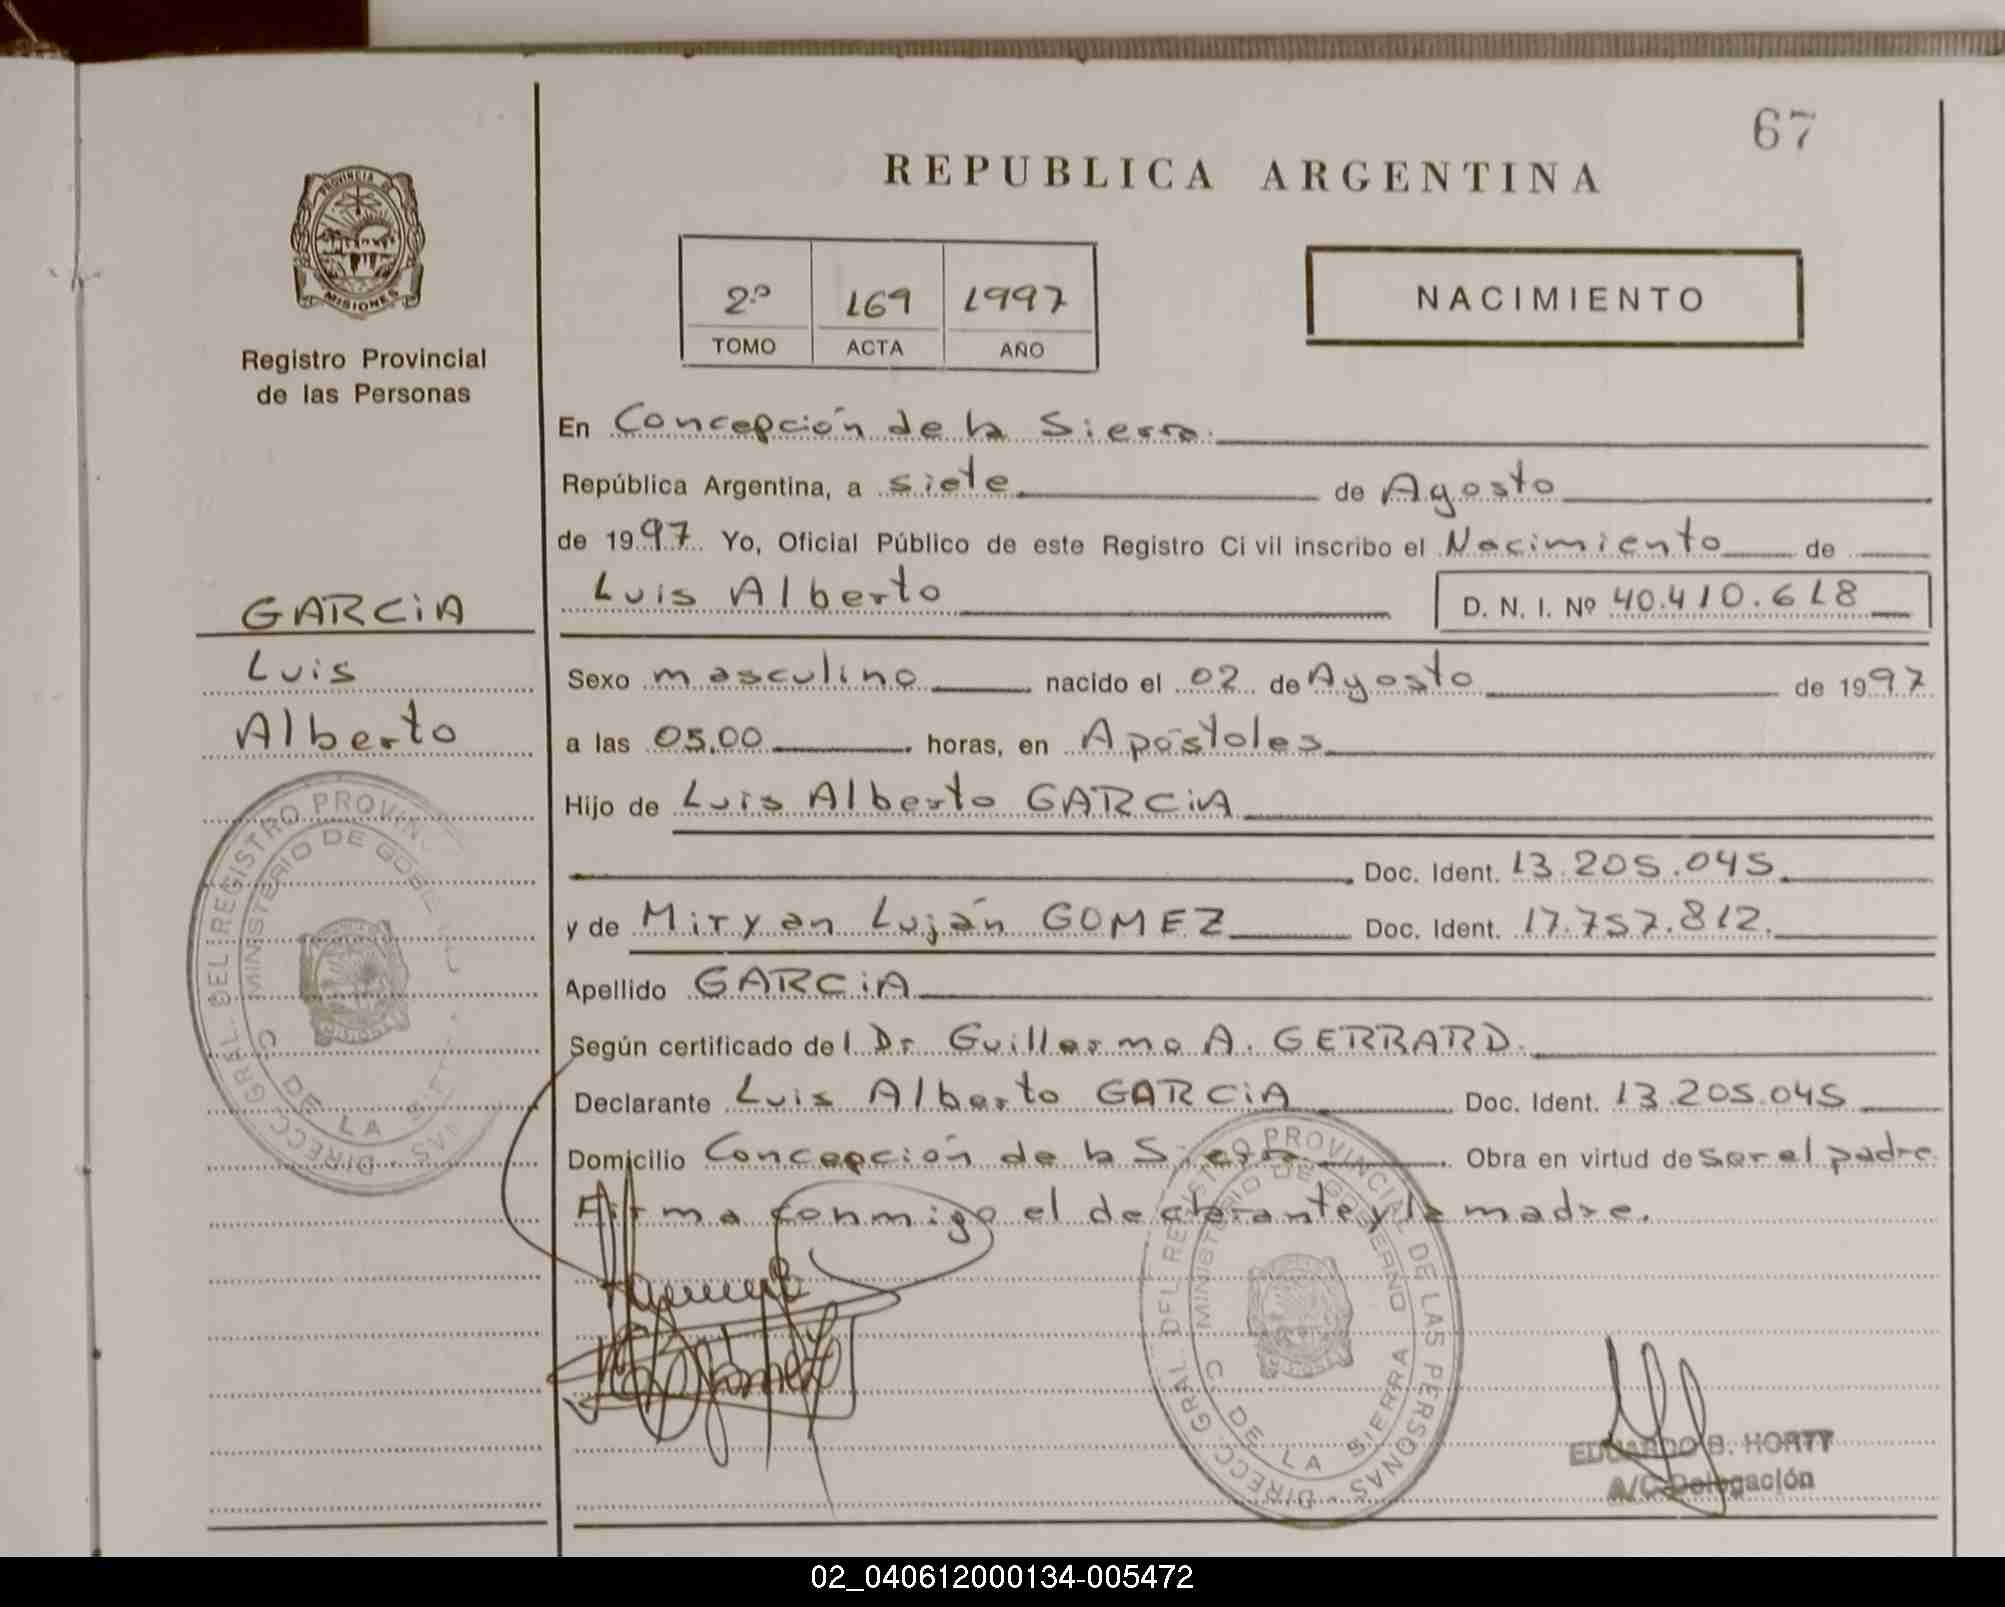 67
REPUBLICA ARGENTINA
PROVINCIA DE
MISIONES
Registro Provincial
de las Personas
2º 169 1997
TOMO ACTA AÑO
NACIMIENTO
En Concepción de la Sierra.
República Argentina, a siete de Agosto
de 1997 Yo, Oficial Público de este Registro Civil inscribo el Nacimiento de
GARCiA
Luis
Alberto
Luis Alberto D. N. I. Nº 40.410.618
Sexo masculino nacido el 02 de Agosto de 1997
a las 05.00 horas, en Apóstoles
Hijo de Luis Alberto GARCiA
Doc. Ident. 13.205.045
y de Miryan Luján GOMEZ Doc. Ident. 17.757.812.
Apellido GARCiA
Según certificado del Dr Guillermo A. GERRARD.
Declarante Luis Alberto GARCiA Doc. Ident. 13.205.045
Domicilio Concepción de la Sierra Obra en virtud de ser el padre
Firma conmigo el declarante y la madre.
DIRECC. GRAL. DEL REGISTRO PROVIN
MINISTERIO DE GOBIE
C DE LA SIE
DIRECC. GRAL. DEL REGISTRO PROVINCIAL DE LAS PERSONAS
MINISTERIO DE GOBIERNO
C DE LA SIERRA
EDUARDO B. HORTT
A/C Delegación
02_040612000134-005472